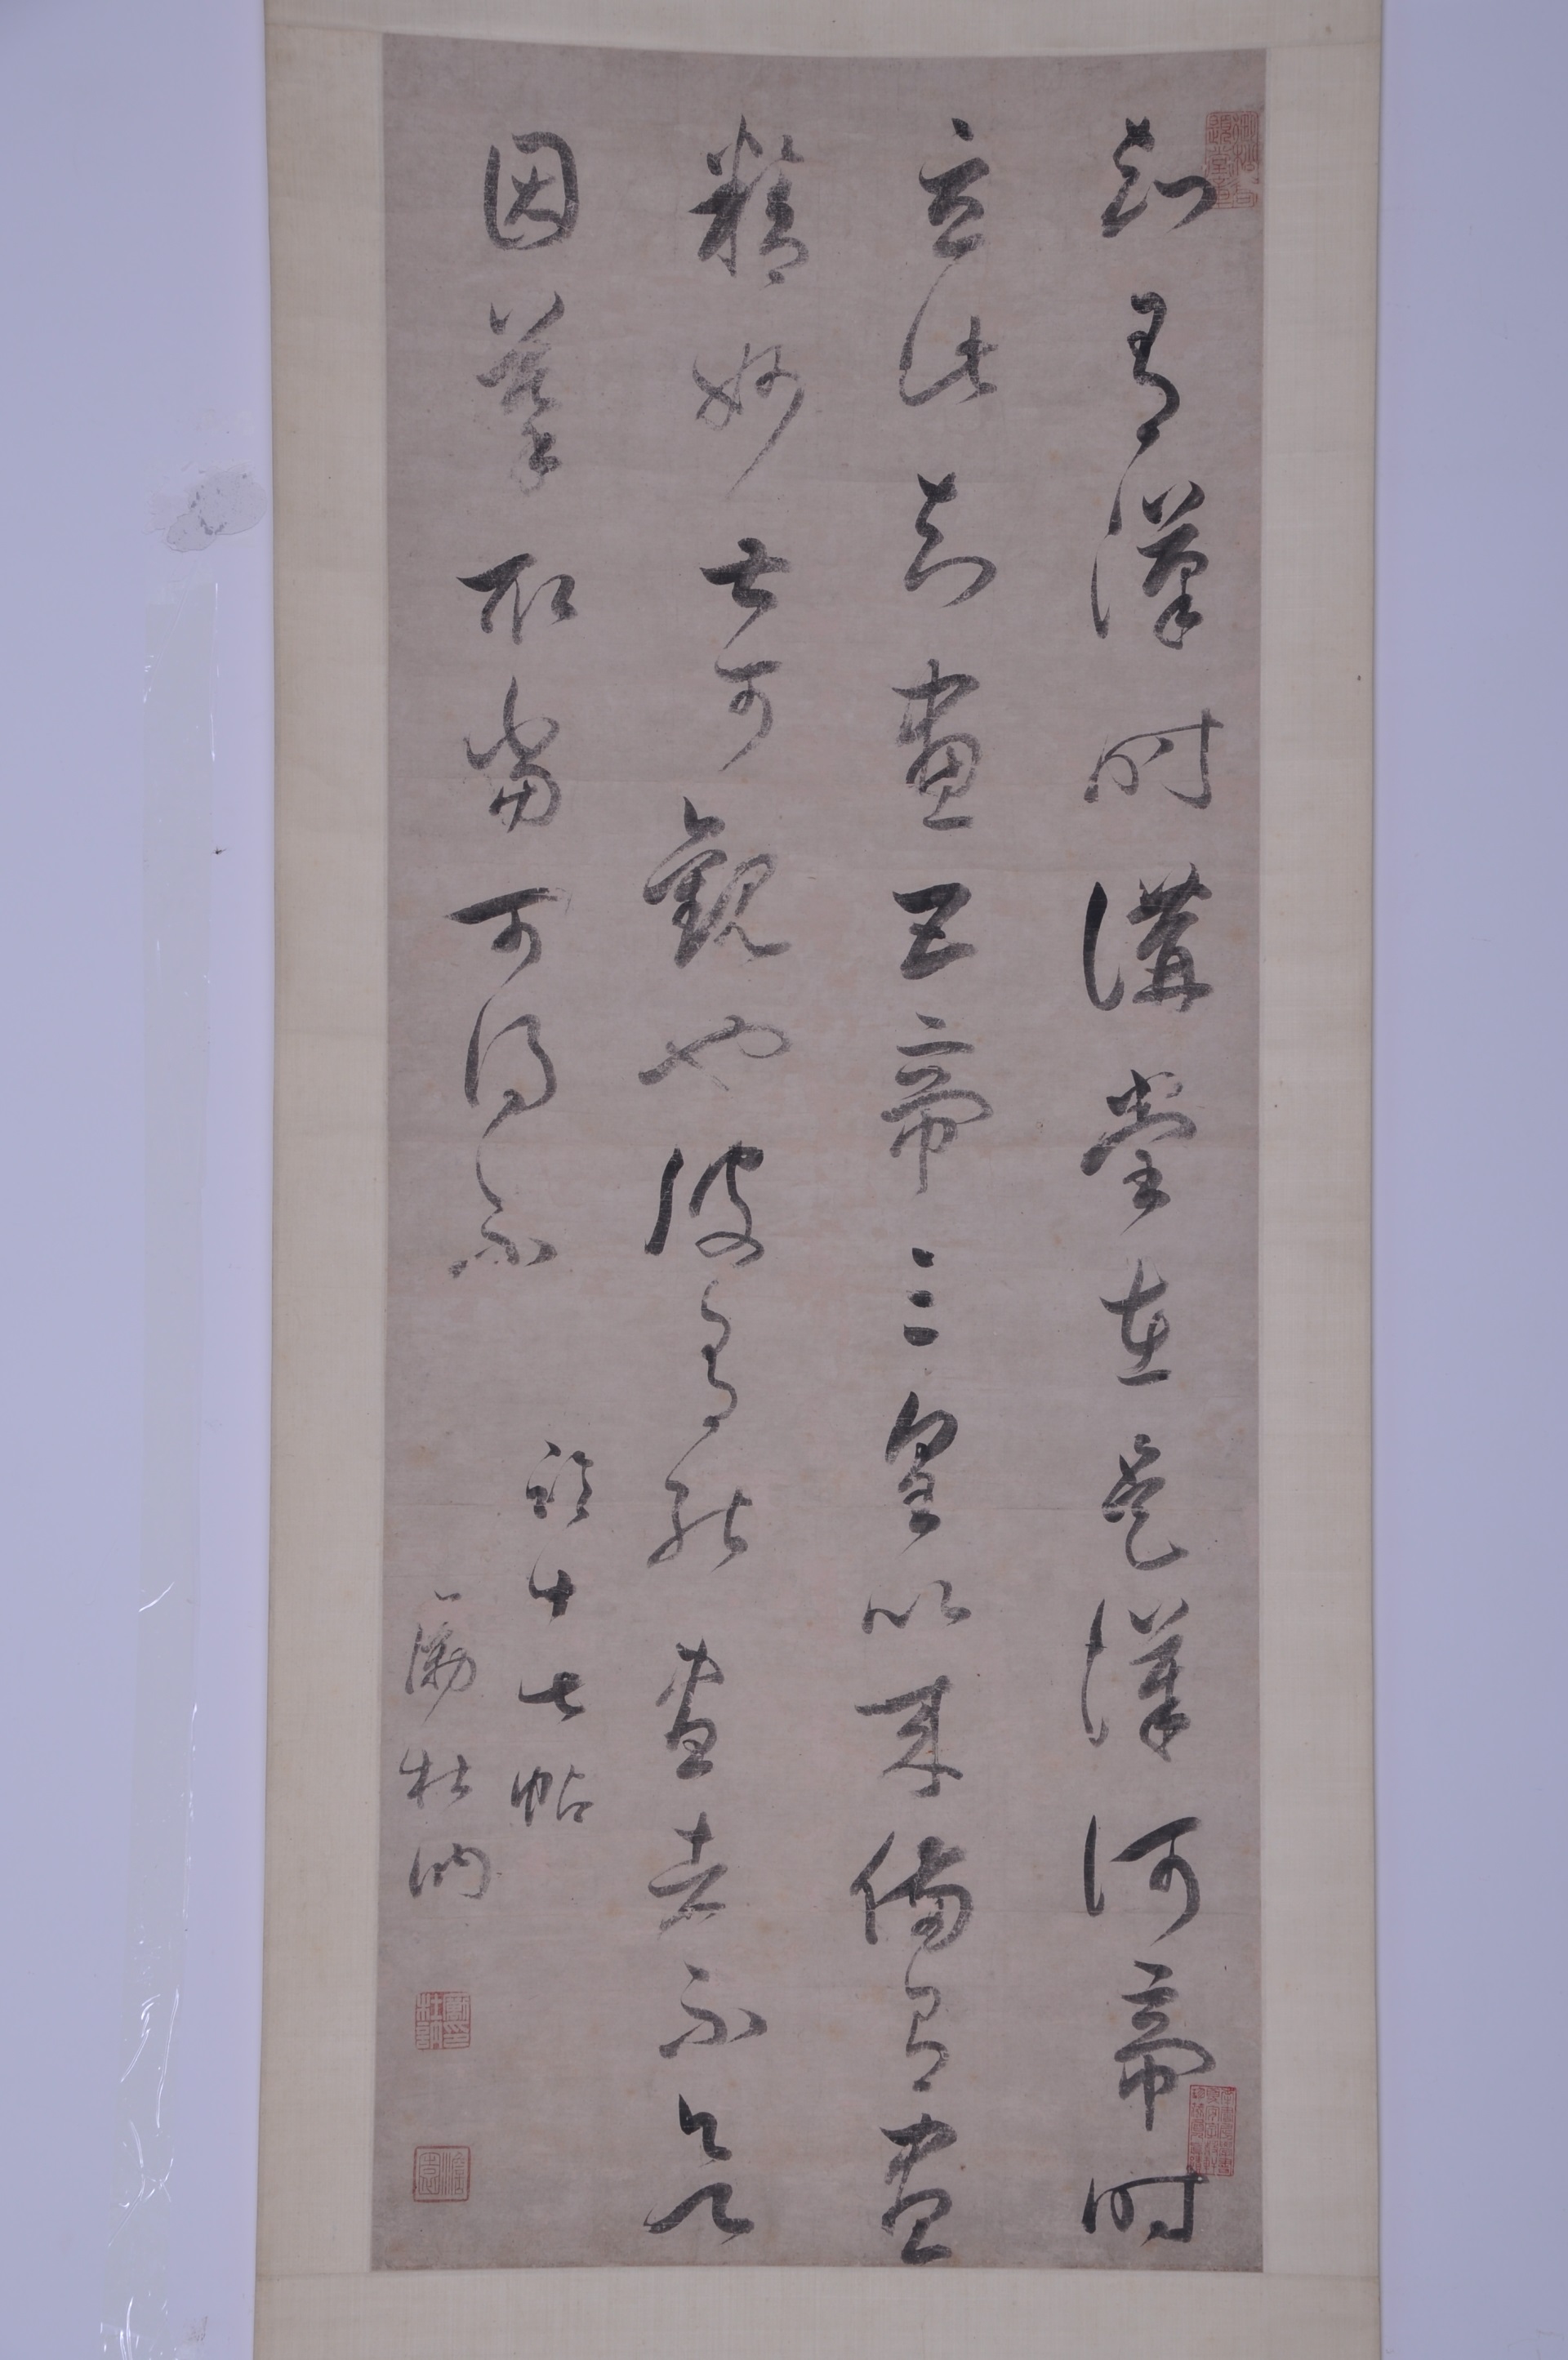 知有漢時講堂在是漢何帝時
立此知畫五帝三皇以來備有畫
精妙甚可觀也彼有能畫者不欲
因摹取當可得不
臨十七帖
勵杜訥
勵印杜訥
澹園